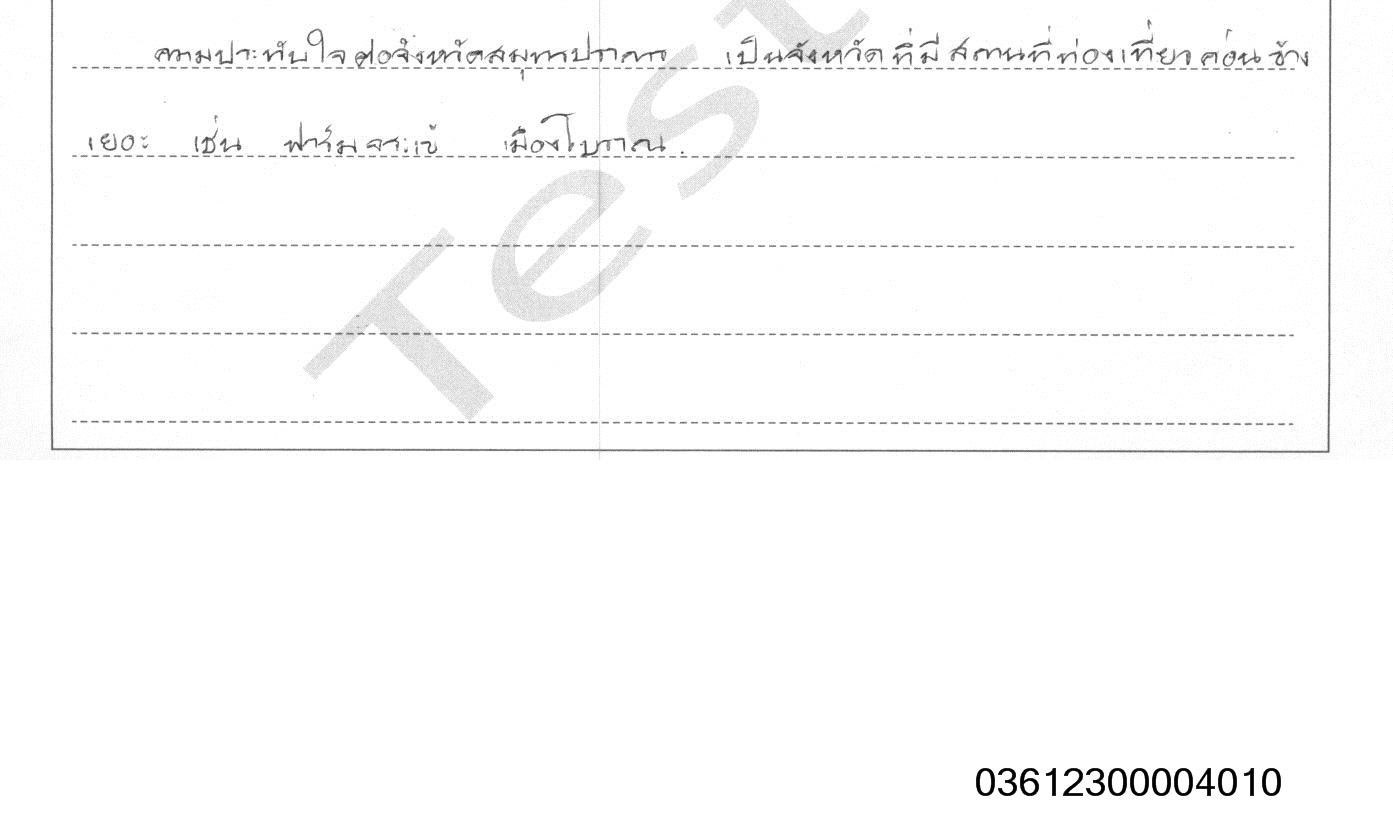 ความประทับใจต่อจังหวัดสมุทรปราการ เป็นจังหวัดที่มีสถานที่ท่องเที่ยวค่อนข้าง
เยอะ เช่น ฟาร์มจระเข้ เมืองโบราณ.
Test
03612300004010